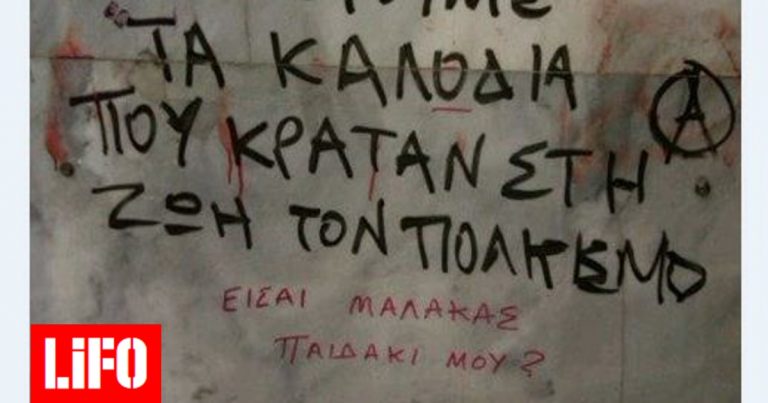 ΤΑ ΚΑΛΟΔΙΑ
ΠΟΥ ΚΡΑΤΑΝ ΣΤΗ
ΖΩΗ ΤΟΝ ΠΟΛΚΕΜΟ
ΕΙΣΑΙ ΜΑΛΑΚΑΣ
ΠΑΙΔΑΚΙ ΜΟΥ?
LiFO